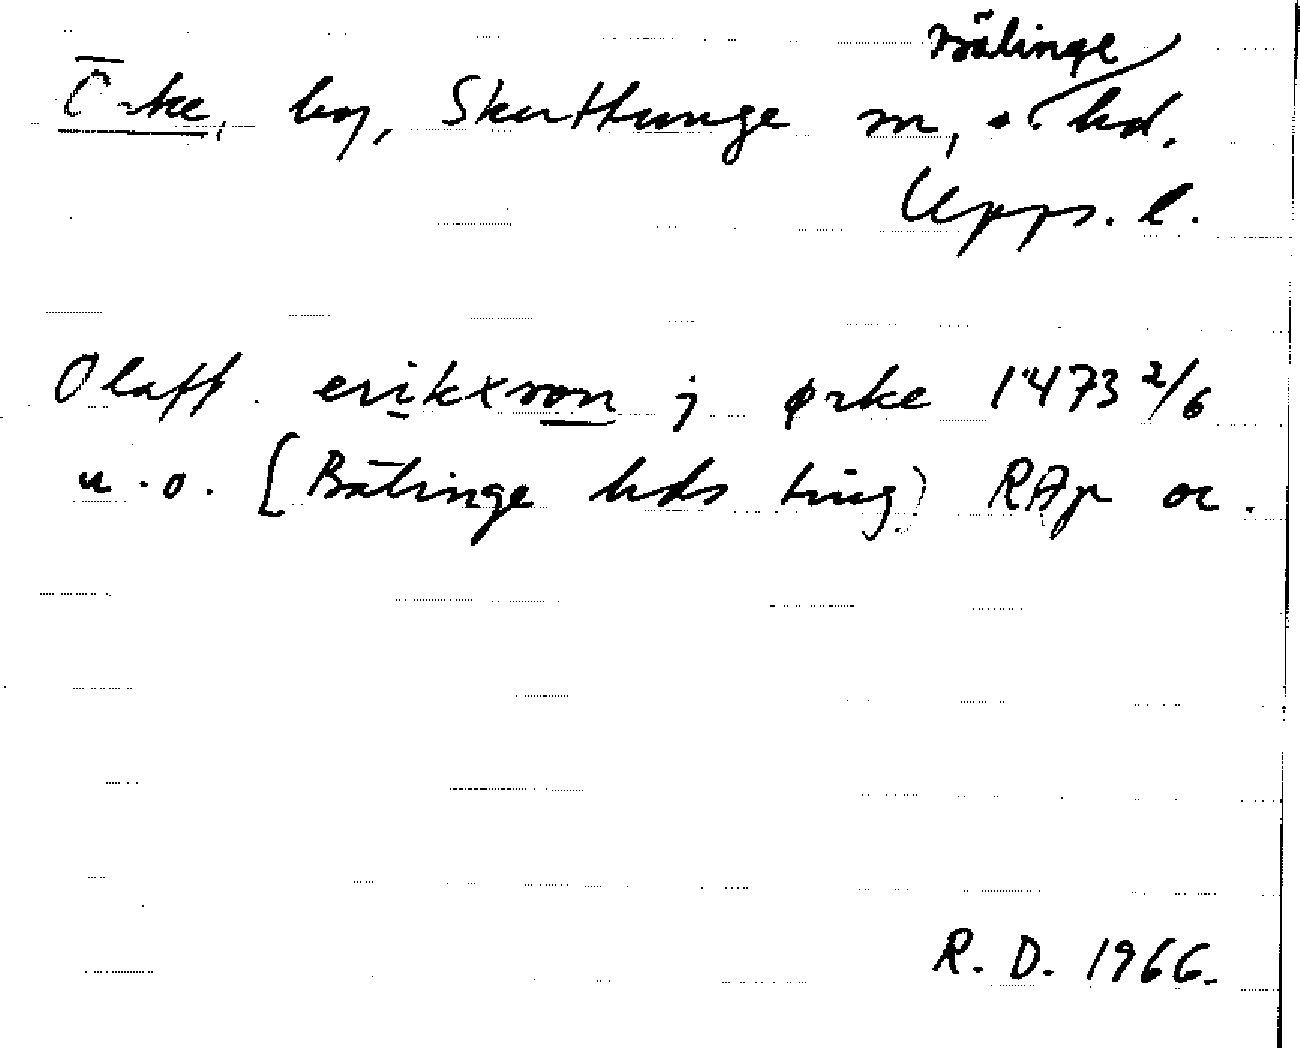 Bälinge
Örke, by, Skuttunge sn, o. hd.
Upps. l.
Olaff erikxson j ørke 1473 2/6
u. o. [Bälinge hds ting) RAp or.
R. D. 1966.